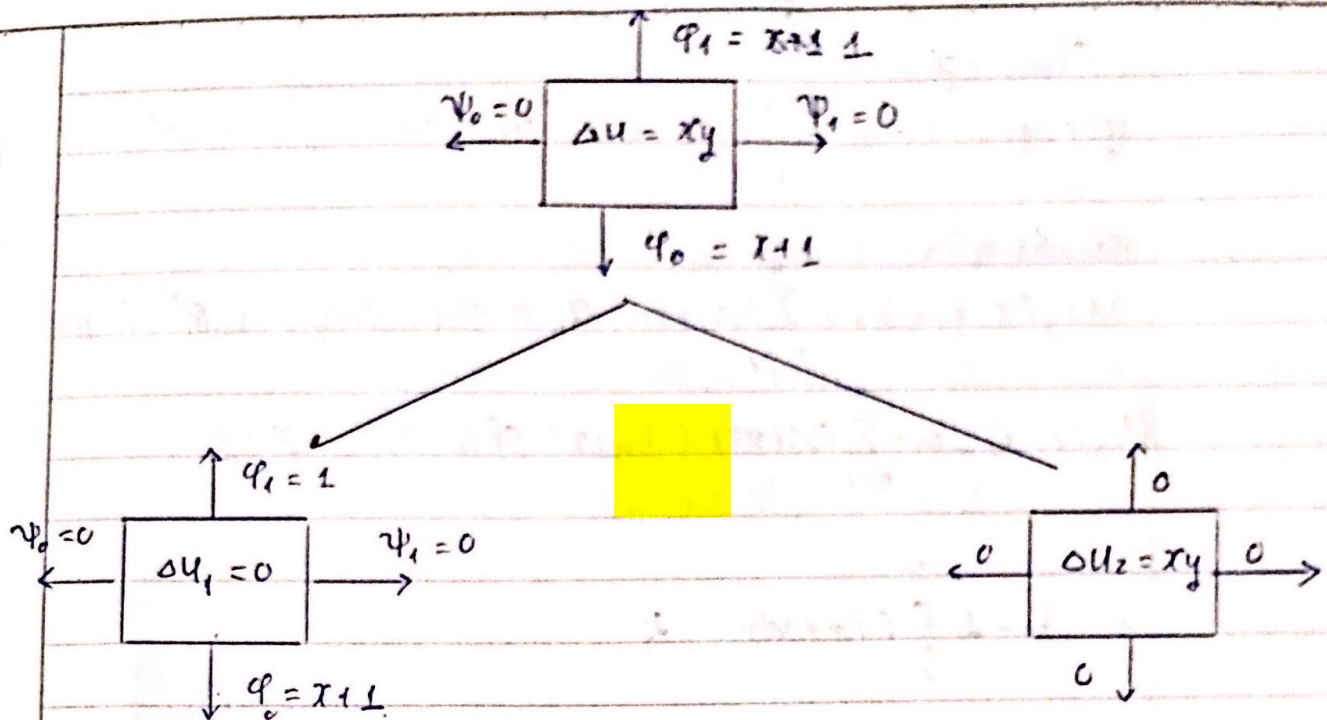 φ₁ = 1
ψ₀ = 0
Δu = xy
ψ₁ = 0
φ₀ = x+1
φ₁ = 1
ψ₀ = 0
Δu₁ = 0
ψ₁ = 0
φ₀ = x+1
0
0
Δu₂ = xy
0
0